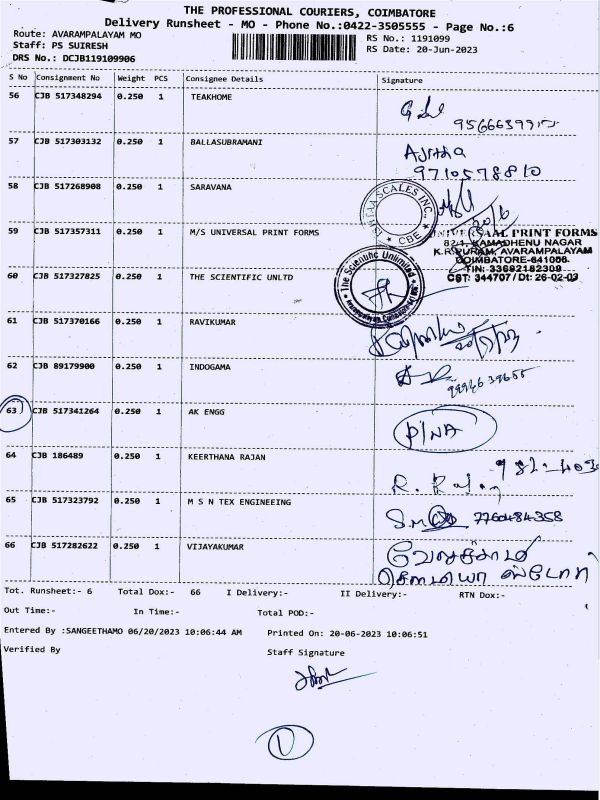 THE PROFESSIONAL COURIERS, COIMBATORE
Delivery Runsheet - MO - Phone No.:0422-3505555 - Page No.:6
Route: AVARAMPALAYAM MO
RS No.: 1191099
Staff: PS SUIRESH
RS Date: 20-Jun-2023
DRS No.: DCJB119109906
S No Consignment No Weight PCS Consignee Details Signature
56 CJB 517348294 0.250 1 TEAKHOME
57 CJB 517303132 0.250 1 BALLASUBRAMANI
Ajitha
9710578810
58 CJB 517268908 0.250 1 SARAVANA
SCALES INC.
* CBE *
59 CJB 517357311 0.250 1 M/S UNIVERSAL PRINT FORMS
UNIVERSAAL PRINT FORMS
82-1, KAMADHENU NAGAR
K.R.PURAM, AVARAMPALAYAM
COIMBATORE-641006.
TIN: 33692182309
CST: 344707 / Dt: 26-02-03
60 CJB 517327825 0.250 1 THE SCIENTIFIC UNLTD
The Scientific Unlimited
61 CJB 517370166 0.250 1 RAVIKUMAR
62 CJB 89179900 0.250 1 INDOGAMA
63 CJB 517341264 0.250 1 AK ENGG
P/NA
64 CJB 186489 0.250 1 KEERTHANA RAJAN
R. Rajan
65 CJB 517323792 0.250 1 M S N TEX ENGINEEING
7760484358
66 CJB 517282622 0.250 1 VIJAYAKUMAR
ஸ்டோர்
Tot. Runsheet:- 6 Total Dox:- 66 I Delivery:- II Delivery:- RTN Dox:-
Out Time:- In Time:- Total POD:-
Entered By :SANGEETHAMO 06/20/2023 10:06:44 AM Printed On: 20-06-2023 10:06:51
Verified By Staff Signature
1